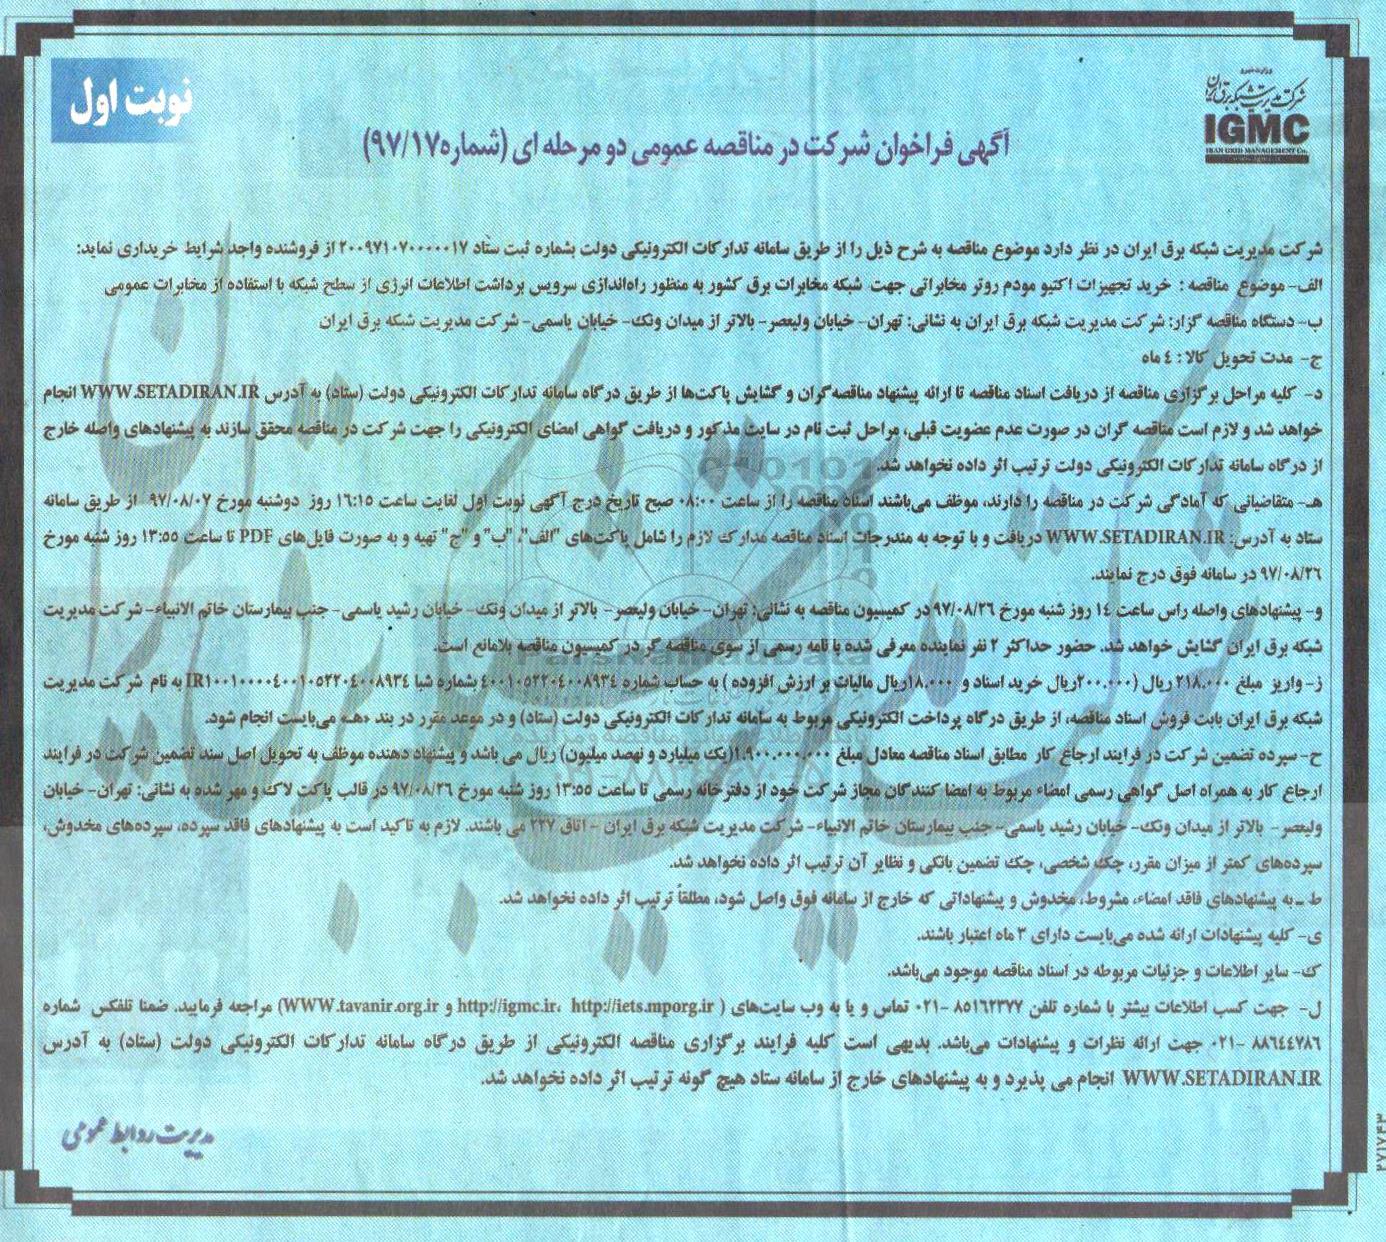 وزارت نیرو
شرکت مدیریت شبکه برق ایران
IGMC
IRAN GRID MANAGEMENT Co.
نوبت اول
آگهی فراخوان شرکت در مناقصه عمومی دو مرحله ای (شماره۹۷/۱۷)
شرکت مدیریت شبکه برق ایران در نظر دارد موضوع مناقصه به شرح ذیل را از طریق سامانه تدارکات الکترونیکی دولت بشماره ثبت ستاد ۲۰۰۹۷۱۰۷۰۰۰۰۰۱۷ از فروشنده واجد شرایط خریداری نماید:
الف- موضوع مناقصه : خرید تجهیزات اکتیو مودم روتر مخابراتی جهت شبکه مخابرات برق کشور به منظور راه‌اندازی سرویس برداشت اطلاعات انرژی از سطح شبکه با استفاده از مخابرات عمومی
ب- دستگاه مناقصه گزار: شرکت مدیریت شبکه برق ایران به نشانی: تهران- خیابان ولیعصر- بالاتر از میدان ونک- خیابان یاسمی- شرکت مدیریت شبکه برق ایران
ج- مدت تحویل کالا : ٤ ماه
د- کلیه مراحل برگزاری مناقصه از دریافت اسناد مناقصه تا ارائه پیشنهاد مناقصه‌گران و گشایش پاکت‌ها از طریق درگاه سامانه تدارکات الکترونیکی دولت (ستاد) به آدرس WWW.SETADIRAN.IR انجام
خواهد شد و لازم است مناقصه گران در صورت عدم عضویت قبلی، مراحل ثبت نام در سایت مذکور و دریافت گواهی امضای الکترونیکی را جهت شرکت در مناقصه محقق سازند به پیشنهادهای واصله خارج
از درگاه سامانه تدارکات الکترونیکی دولت ترتیب اثر داده نخواهد شد.
هـ- متقاضیانی که آمادگی شرکت در مناقصه را دارند، موظف می‌باشند اسناد مناقصه را از ساعت ۰۸:۰۰ صبح تاریخ درج آگهی نوبت اول لغایت ساعت ۱۶:۱۵ روز دوشنبه مورخ ۹۷/۰۸/۰۷ از طریق سامانه
ستاد به آدرس: WWW.SETADIRAN.IR دریافت و با توجه به مندرجات اسناد مناقصه مدارک لازم را شامل پاکت‌های "الف"، "ب" و "ج" تهیه و به صورت فایل‌های PDF تا ساعت ۱۳:۵۵ روز شنبه مورخ
۹۷/۰۸/۲۶ در سامانه فوق درج نمایند.
و- پیشنهادهای واصله راس ساعت ۱٤ روز شنبه مورخ ۹۷/۰۸/۲۶ در کمیسیون مناقصه به نشانی: تهران- خیابان ولیعصر- بالاتر از میدان ونک- خیابان رشید یاسمی- جنب بیمارستان خاتم الانبیاء- شرکت مدیریت
شبکه برق ایران گشایش خواهد شد. حضور حداکثر ۲ نفر نماینده معرفی شده با نامه رسمی از سوی مناقصه گر در کمیسیون مناقصه بلامانع است.
ز- واریز مبلغ ۲۱۸.۰۰۰ ریال (۲۰۰.۰۰۰ریال خرید اسناد و ۱۸.۰۰۰ریال مالیات بر ارزش افزوده ) به حساب شماره ٤۰۰۱۰۵۲۲۰٤۰۰۸۹۳٤ بشماره شبا IR۱۰۰۱۰۰۰۰٤۰۰۱۰۵۲۲۰٤۰۰۸۹۳٤ به نام شرکت مدیریت
شبکه برق ایران بابت فروش اسناد مناقصه، از طریق درگاه پرداخت الکترونیکی مربوط به سامانه تدارکات الکترونیکی دولت (ستاد) و در موعد مقرر در بند «هـ» می‌بایست انجام شود.
ح- سپرده تضمین شرکت در فرایند ارجاع کار مطابق اسناد مناقصه معادل مبلغ ۱.۹۰۰.۰۰۰.۰۰۰(یک میلیارد و نهصد میلیون) ریال می باشد و پیشنهاد دهنده موظف به تحویل اصل سند تضمین شرکت در فرایند
ارجاع کار به همراه اصل گواهی رسمی امضاء مربوط به امضا کنندگان مجاز شرکت خود از دفترخانه رسمی تا ساعت ۱۳:۵۵ روز شنبه مورخ ۹۷/۰۸/۲۶ در قالب پاکت لاک و مهر شده به نشانی: تهران- خیابان
ولیعصر- بالاتر از میدان ونک- خیابان رشید یاسمی- جنب بیمارستان خاتم الانبیاء- شرکت مدیریت شبکه برق ایران - اتاق ۲۲۷ می باشند. لازم به تاکید است به پیشنهادهای فاقد سپرده، سپرده‌های مخدوش،
سپرده‌های کمتر از میزان مقرر، چک شخصی، چک تضمین بانکی و نظایر آن ترتیب اثر داده نخواهد شد.
ط ـ به پیشنهادهای فاقد امضاء، مشروط، مخدوش و پیشنهاداتی که خارج از سامانه فوق واصل شود، مطلقاً ترتیب اثر داده نخواهد شد.
ی- کلیه پیشنهادات ارائه شده می‌بایست دارای ۳ ماه اعتبار باشند.
ک- سایر اطلاعات و جزئیات مربوطه در اسناد مناقصه موجود می‌باشد.
ل- جهت کسب اطلاعات بیشتر با شماره تلفن ۸۵۱۶۲۳۷۷ -۰۲۱ تماس و یا به وب سایت‌های ( http://igmc.ir، http://iets.mporg.ir و WWW.tavanir.org.ir) مراجعه فرمایید. ضمنا تلفکس شماره
۸۸۶٤٤۷۸۶ -۰۲۱ جهت ارائه نظرات و پیشنهادات می‌باشد. بدیهی است کلیه فرایند برگزاری مناقصه الکترونیکی از طریق درگاه سامانه تدارکات الکترونیکی دولت (ستاد) به آدرس
WWW.SETADIRAN.IR انجام می پذیرد و به پیشنهادهای خارج از سامانه ستاد هیچ گونه ترتیب اثر داده نخواهد شد.
مدیریت روابط عمومی
۲۷۱۷۴۳